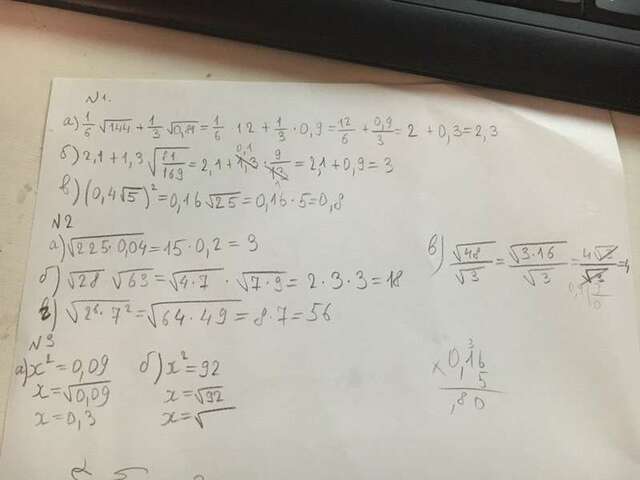 №1.
а) 1/6 √144 + 1/3 √0,81 = 1/6 12 + 1/3 · 0,9 = 12/6 + 0,9/3 = 2 + 0,3 = 2,3
б) 2,1 + 1,3 √81/169 = 2,1 + 1,3 · 9/13 = 2,1 + 0,9 = 3
0,1
1
в) (0,4√5)² = 0,16 √25 = 0,16 · 5 = 0,8
№2
а) √225·0,04 = 15 · 0,2 = 3
б) √28 √63 = √4·7 · √7·9 = 2 · 3 · 3 = 18
в) √48/√3 = √3·16/√3 = 4√3/√3 = 4
г) √2⁶· 7² = √64 · 49 = 8 · 7 = 56
№3
а) x² = 0,09
x = √0,09
x = 0,3
б) x² = 92
x = √92
x = √
3
× 0,16
5
,80